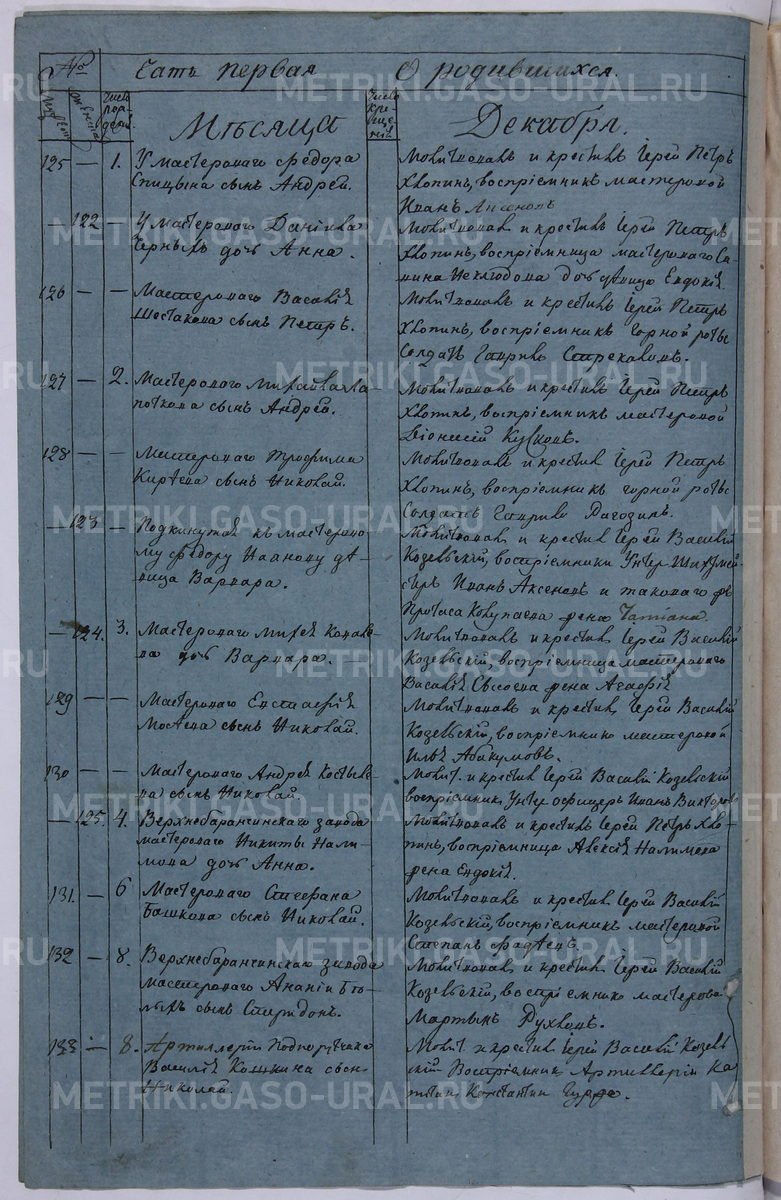 № Часть первая О родившихся.
Мужеска Женска Число рождения Число крещений
Мѣсяца Декабря.
125 — 1. У мастероваго Федора
Спицына сынъ Андрей.
Молитвовалъ и крестилъ Іерей Петръ
Хлопинъ, воспріемникъ мастеровой
Иванъ Аксеновъ
— 122 — У мастероваго Даніила
Черныхъ дочь Анна.
Молитвовалъ и крестилъ Іерей Петръ
Хлопинъ, воспріемница мастероваго Са-
вина Неклюдова дочь дѣвица Евдокія.
126 — — Мастероваго Василія
Шостакова сынъ Петръ.
Молитвовалъ и крестилъ Іерей Петръ
Хлопинъ, воспріемникъ горной роты
солдатъ Гаврило Стрекаловъ.
127 — 2. Мастероваго Михайла Ла
поткова сынъ Андрей.
Молитвовалъ и крестилъ Іерей Петръ
Хлопинъ, воспріемникъ мастеровой
Діонисій
128 — — Мастероваго Трофима
Кирѣева сынъ Николай.
Молитвовалъ и крестилъ Іерей Петръ
Хлопинъ, воспріемникъ горной роты
Солдатъ Гаврило Рагозинъ.
— 123 — Подкинутая къ мастерово-
му Федору Иванову дѣ-
вица Варвара.
Молитвовалъ и крестилъ Іерей Василій
Козельскій, воспріемники Унтер Шихтмей-
стеръ Иванъ Аксеновъ и таковаго ж
Протаса Колупаева жена Татіана.
— 124. 3. Мастероваго Михея Ковале-
ва дочь Варвара.
Молитвовалъ и крестилъ Іерей Василій
Козельскій, воспріемница мастероваго
Василія Сысоева жена Агафія
129 — — Мастероваго Евстафія
сынъ Николай.
Молитвовалъ и крестилъ Іерей Василій
Козельскій, воспріемникъ мастеровой
Илья Абакумовъ.
130 — — Мастероваго Андрея Костыле-
ва сынъ Николай.
Молит. и крестилъ Іерей Василій Козельскій
воспріемник Унтер офицеръ Иванъ Викторов
— 125. 4. Верхнебаранчинскаго завода
мастероваго Никиты Нали-
мова дочь Анна.
Молитвовалъ и крестилъ Іерей Петръ Хло-
пинъ, воспріемница Алексѣя Налимова
жена Евдокія.
131. — 6 Мастероваго Стефана
Башкова сынъ Николай.
Молитвовалъ и крестилъ Іерей Василій
Козельскій, воспріемникъ мастеровой
Степанъ Фадѣевъ.
132 — 8. Верхнебаранчинскаго завода
мастероваго Ананіи Бѣ-
лыхъ сынъ Спиридонъ.
Молитвовалъ и крестилъ Іерей Василій
Козельскій, воспріемникъ мастерово
Мартынъ Духловъ.
133 — 8. Артиллеріи Подпоручика
Василія Кошкина сынъ
Николай.
Молит и крестил Іерей Василій Козель
скій Воспріемник Артиллеріи Ка
питан Константин
METRIKI.GASO-URAL.RU